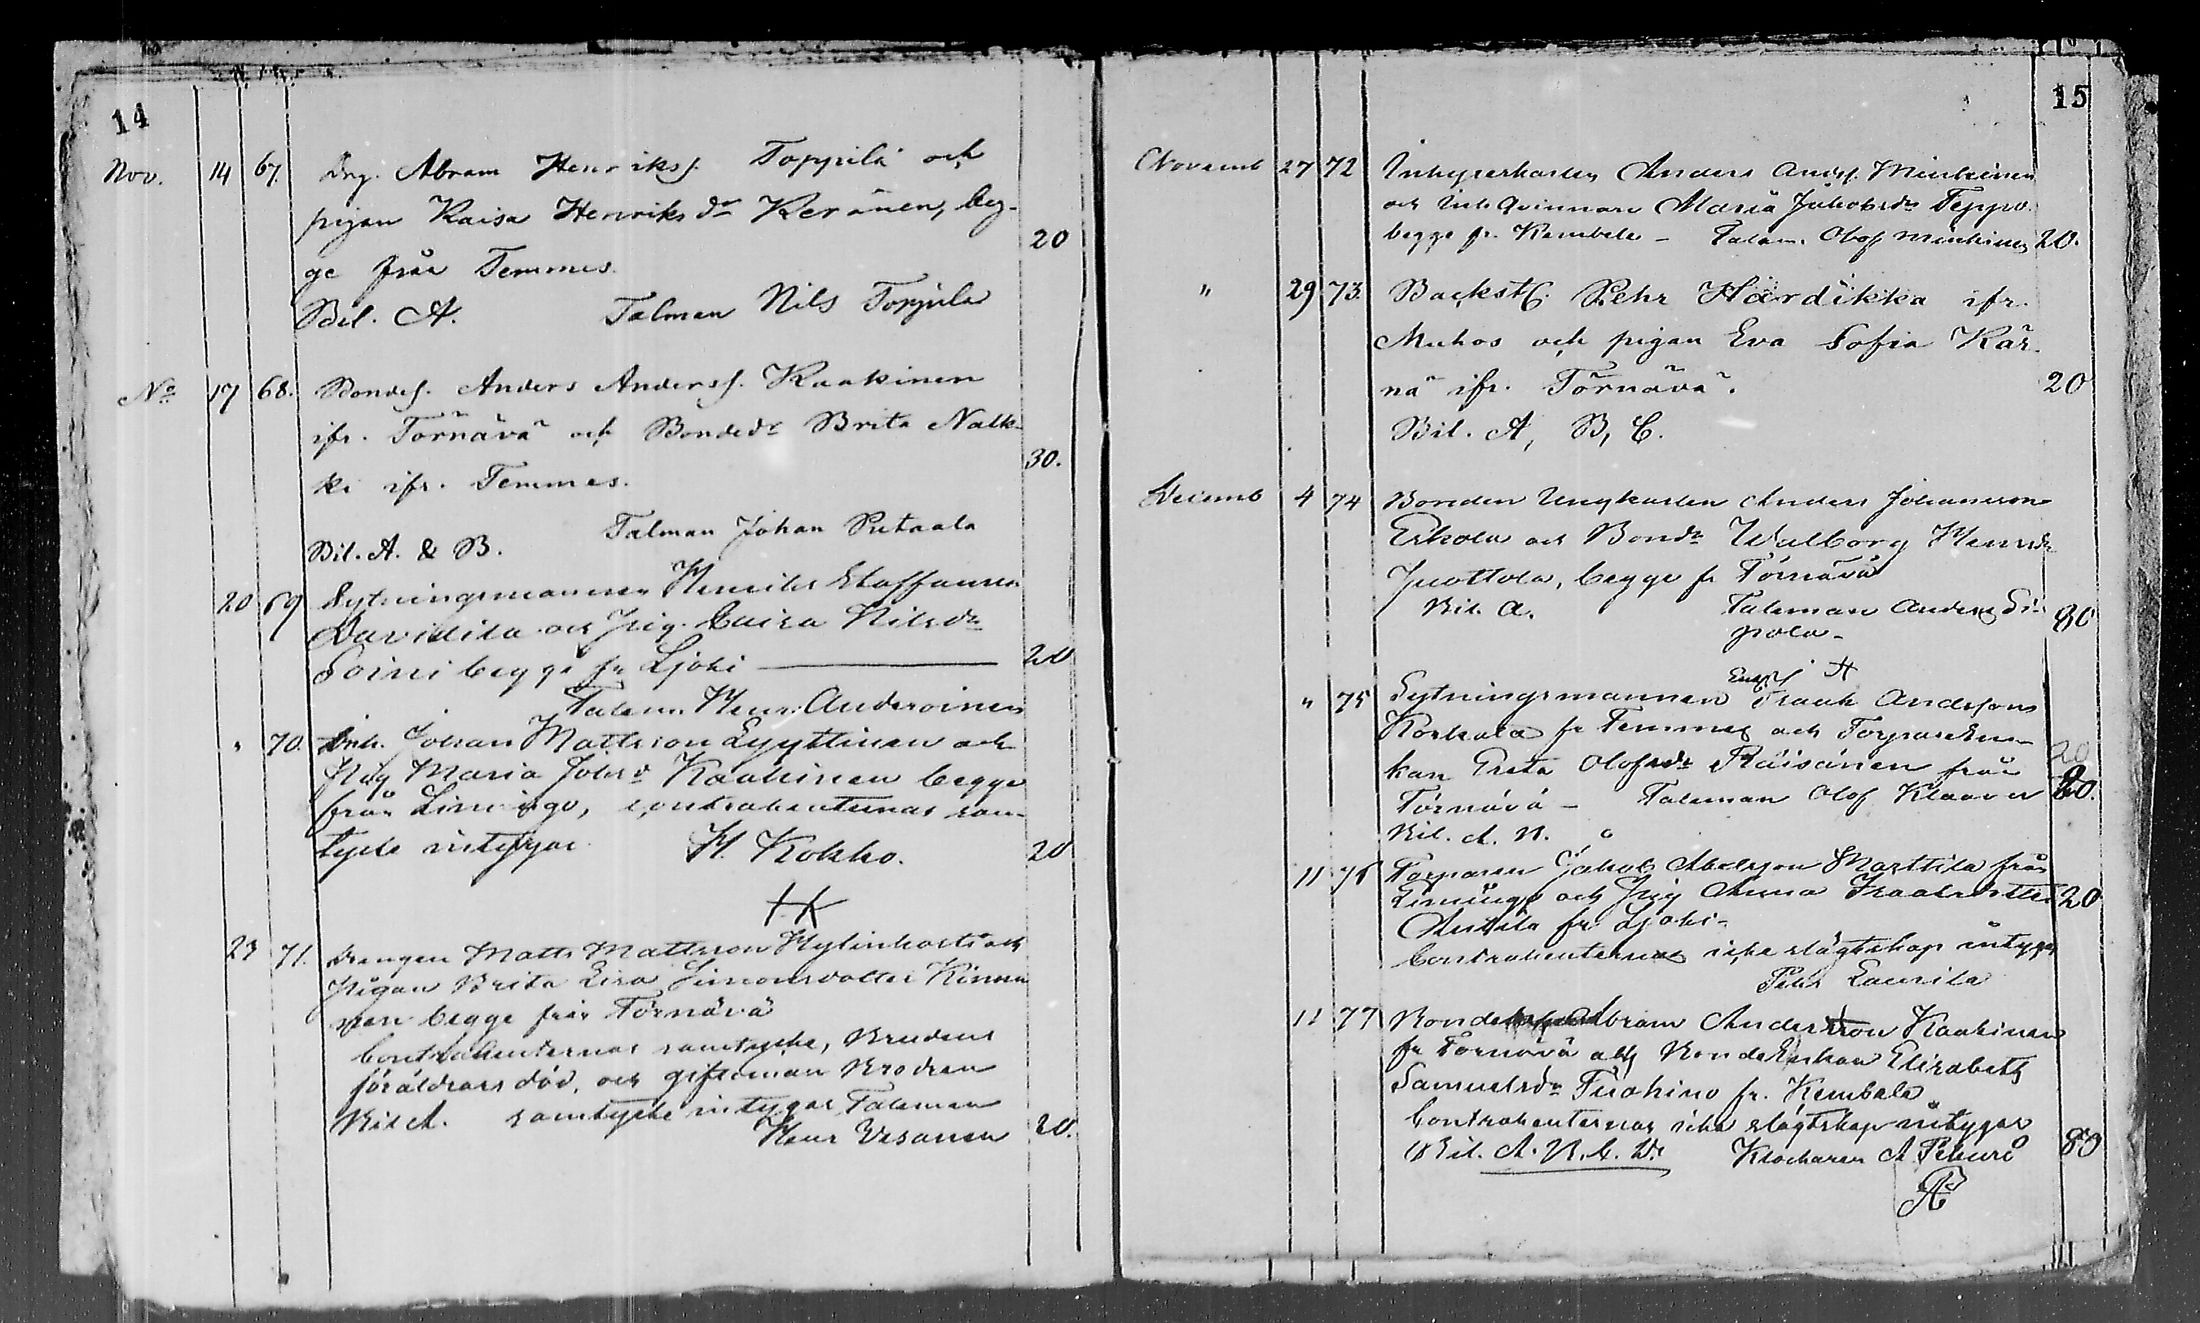 14
Nov. 14 67. Drg. Abram Henrikss. Toppila och
pigan Kaisa Henriksdr Keränen, beg-
ge från Temmes. 20
Bil. A. Talman Nils Toppila
No 17 68. Bondes. Anders Anderss. Kaakinen
ifr. Törnävä och Bondedr Brita Nalk-
ki ifr. Temmes. 30.
Bil. A. & B. Talman Johan Pietaala
20 69 Sytningsmannen Henrik Staffansson
Davidila och Pig. Caisa Nilsdr
Soini begge fr Ljoki 20
Talem. Henr. Anderoinen
" 70. Inh. Johan Mattsson Lyyttinen och
Pig Maria Johsd Kaakinen begge
från Limingo, contrahenternas sam-
tycke intygar H. Kokko. 20
23 71. Drengen Matts Mattsson Hylinkoski och
Pigan Brita Lisa Simonsdotter Kinnu
nen begge från Törnävä
Contrahenternas samtycke, Brudens
föräldrars död, och giftoman Brodren
Bil A. samtycke intygar Taleman
Henr Vesanen 20.
15
Novemb 27 72 Inhyserkarlen Anders Ands. Minkinen
och Inh Qvinnan Maria Jakobsdr Teppo
begge fr. Kembele - Talem. Olof Minkinen 20.
" 29 73. Backst. Pehr Härdikka ifr.
Muhos och pigan Eva Sofia Kär-
nä ifr. Törnävä. 20
Bil. A, B, C.
Decemb 4 74 Bonden Ungkarlen Anders Johansson
Erkola och Bondr Walborg Henrsdr
Juottola, begge fr Törnävä
Bil. A. Taleman Anders Si- 80
pola -
" 75 Sytningsmannen Isaak Andersson
Korkala fr Temmes och Torpareen-
kan Greta Olofsdr Räisänen från 20
Törnävä - Taleman Olof Klaavu 20.
Bil. A. B.
11 76 Torparen Jakob Abelsson Marttila från
Limingo och Pig Anna Isaaksdotter 20
Anttila fr Ljoki -
Contrahenternas icke slägtskap intygar
Pehr Laurila
11 77 Bonde Abram Andersson Kaakinen
fr Törnävä och Bonde Enkan Elisabeth
Samuelsdr Tuohino fr. Kembele
Contrahenternas icke slägtskap intygar
Bil. A. B. C. D. Klockaren A Pekuri 80